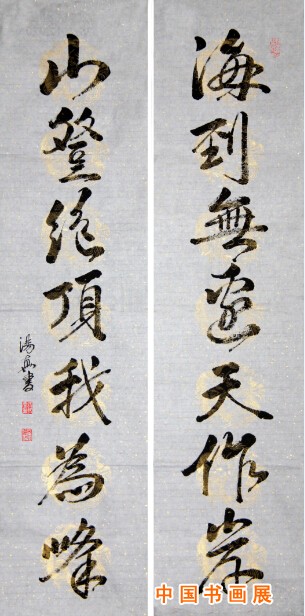 海到無邊天作岸
山登絶頂我為峰
中国书画展